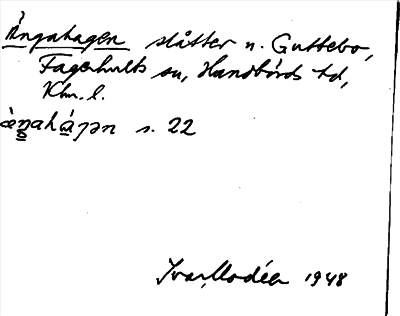 Ängahagen slåtter n. Guttebo,
Fagerhults sn, Handbörds hd,
Klm. l.
àŋahájən s. 22
Ivar Modéer 1948